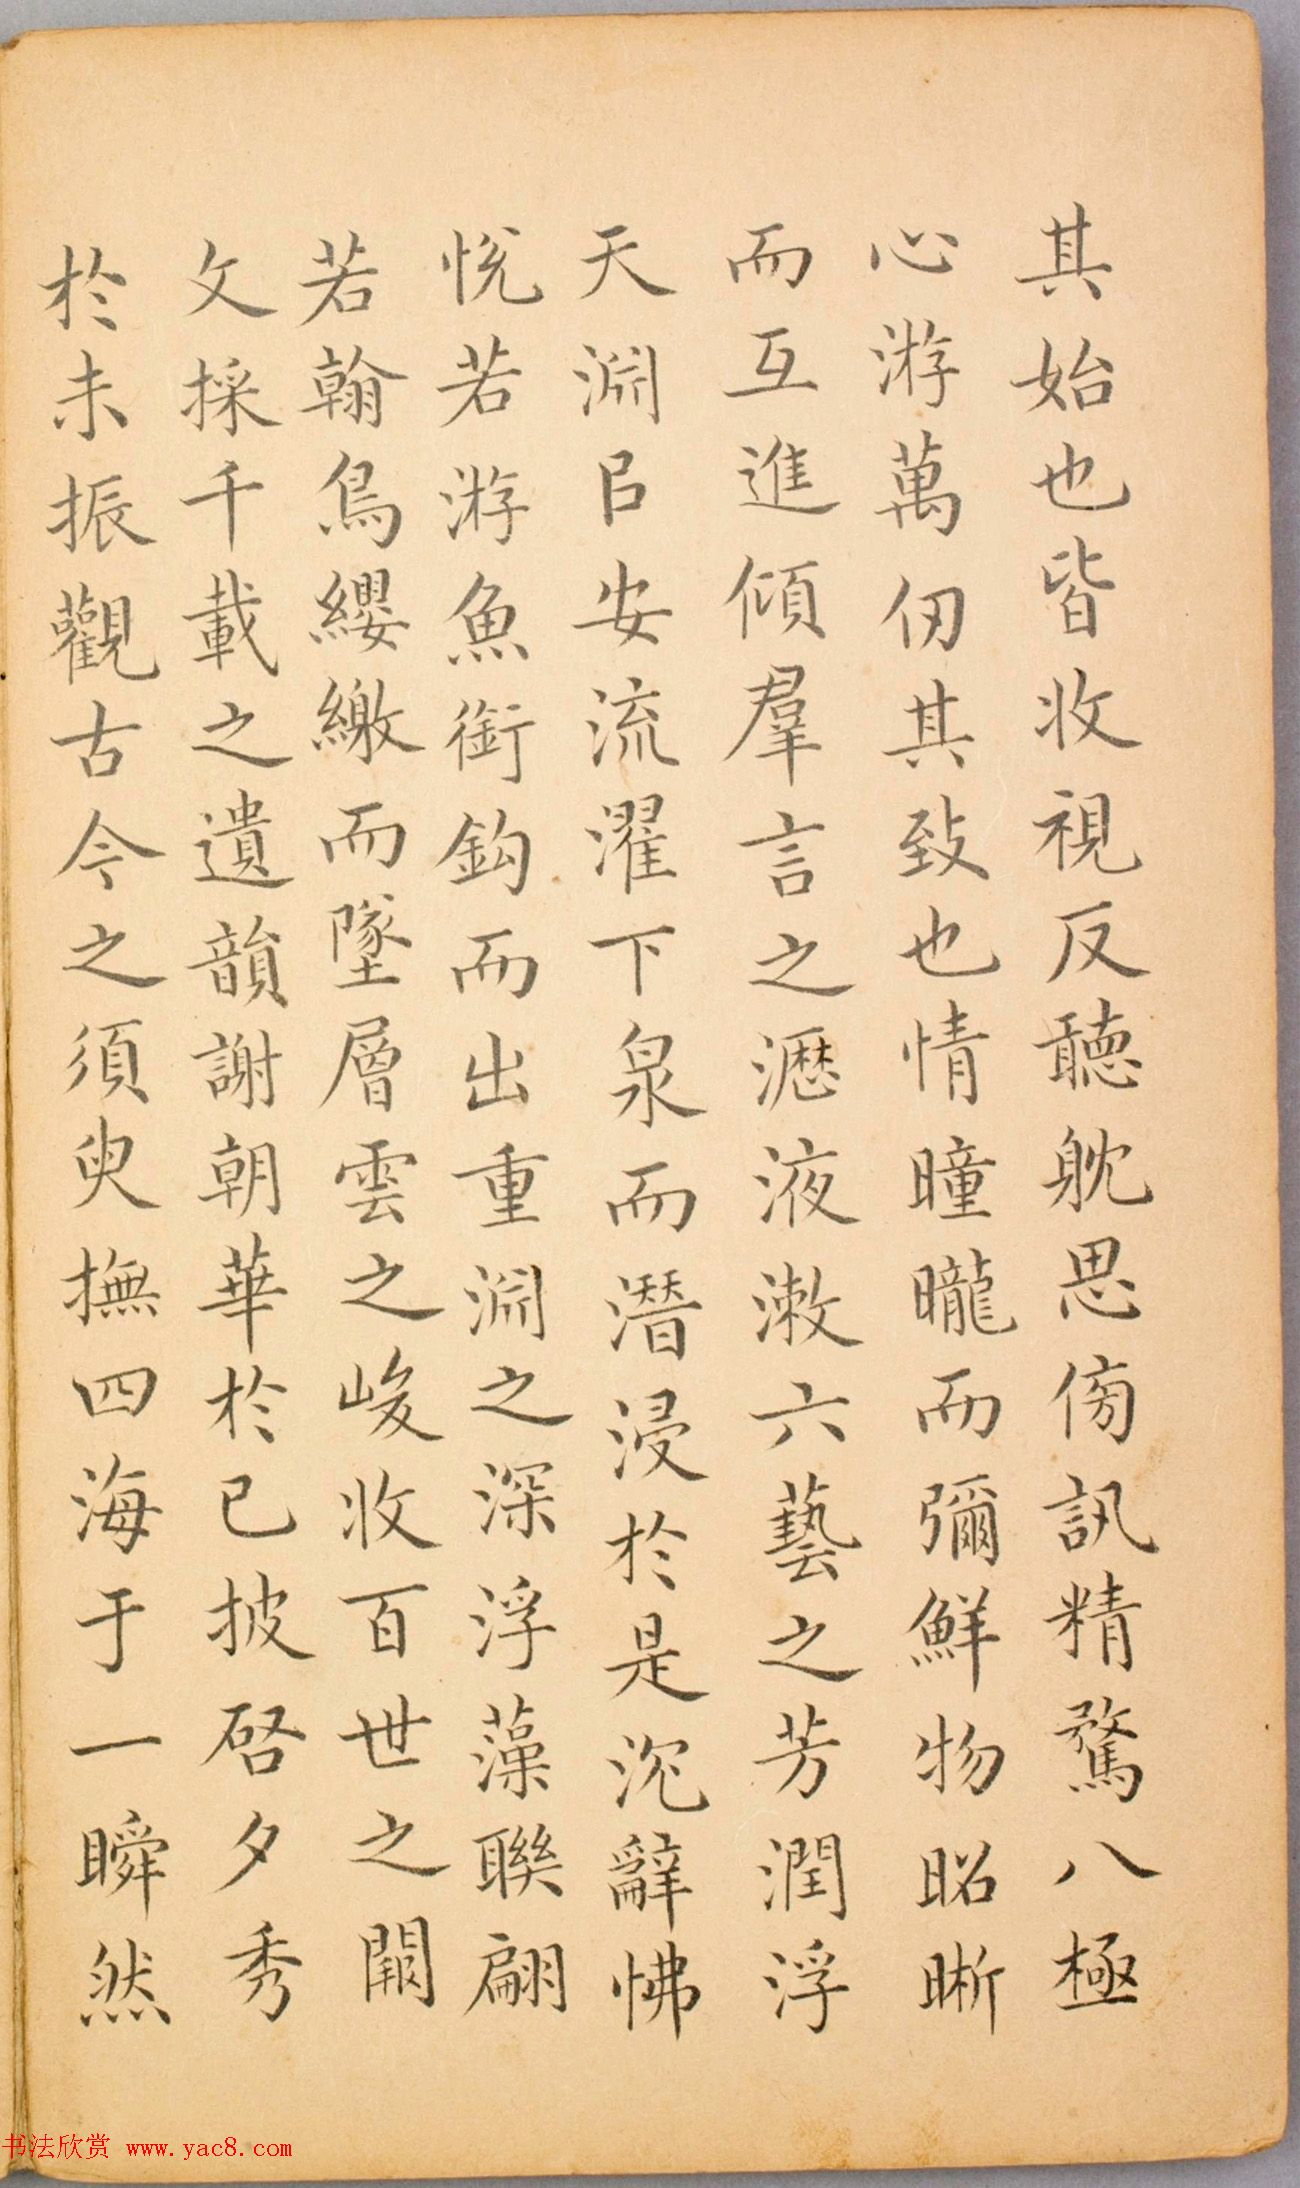 其始也皆收視反聽躭思傍訊精騖八極
心游萬仞其致也情曈曨而彌鮮物昭晰
而互進傾羣言之瀝液漱六藝之芳潤浮
天淵㠯安流濯下泉而潛浸於是沉辭怫
悅若游魚銜鈎而出重淵之深浮藻聯翩
若翰鳥纓繳而墜層雲之峻收百世之闕
文採千載之遺韻謝朝華於已披啓夕秀
於未振觀古今之須臾撫四海于一瞬然
书法欣赏 www.yac8.com